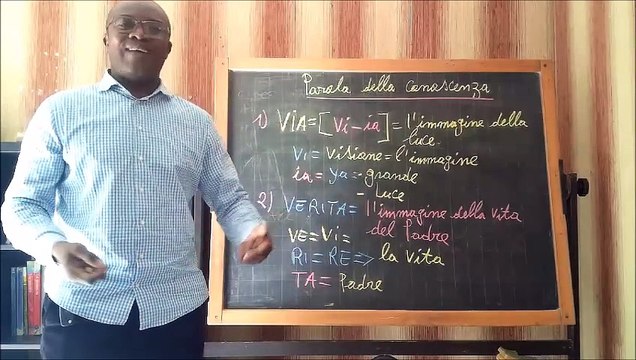 Parola della Conascenza
1) VIA=[Vi-ia]=l'immagine della
luce
Vi=Visiane=l'immagine
ia=ya=-grande
-Luce
2) VERITA=l'immagine della vita
del Padre
VE=Vi=
RI=RE=>la vita
TA=Padre